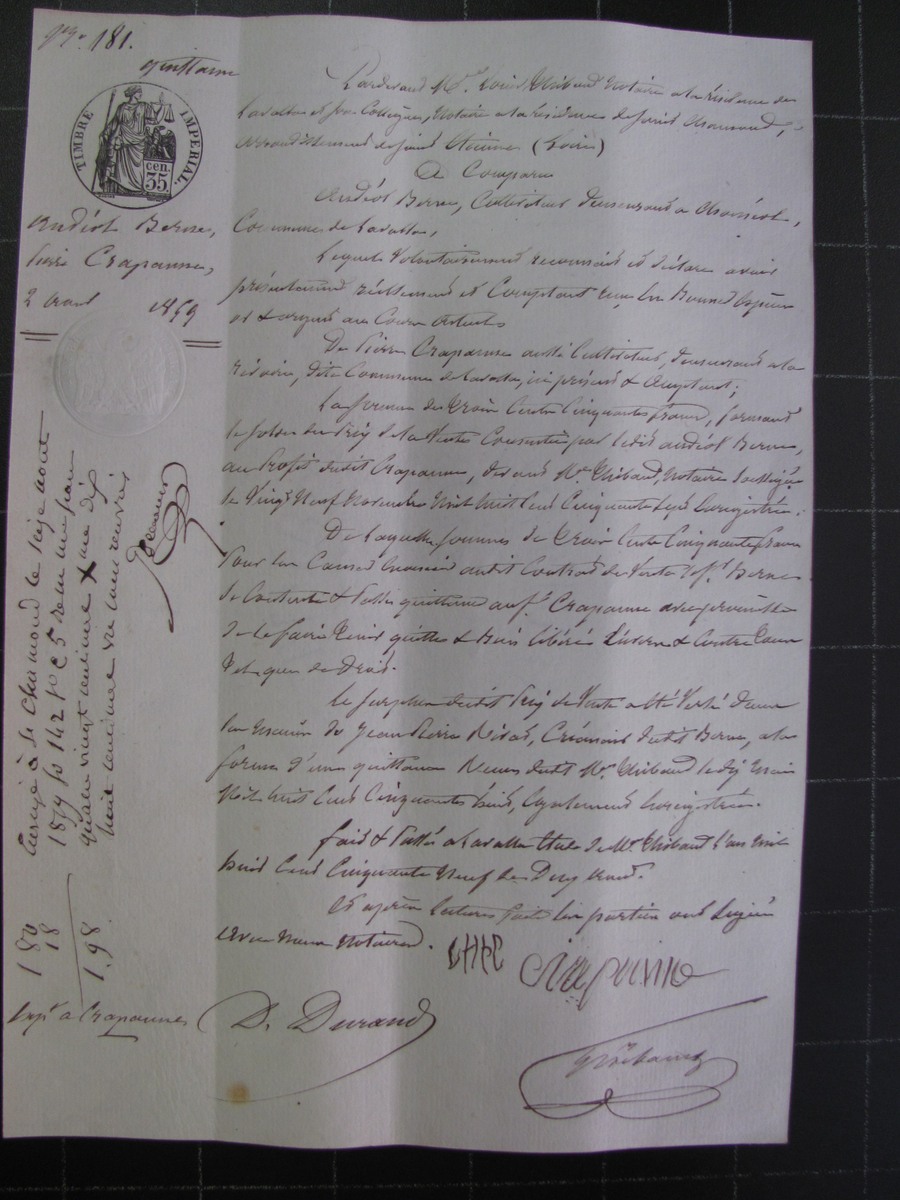 No. 181.
quittance
TIMBRE IMPERIAL.
cen. 35
Andéol Berne,
Pierre Crapanne,
2 aout 1859
Pardevant Me Louis Thibaud Notaire à la résidence de
Lavalla et son Collègue, Notaire à la résidence de Saint Chamond,
arrondissement de Saint Etienne (Loire)
A Comparu
Andéol Berne, Cultivateur demeurant à
Commune de Lavalla,
Lequel Volontairement reconnait et déclare avoir
présentement réellement et Comptant reçu en Bonnes Espèces
or & argent au Cours actuel
De Pierre Crapanne aussi Cultivateur, demeurant à la
dite Commune de Lavalla, ici présent & acceptant;
La somme de trois Cents Cinquante francs, formant
le solde du Prix de la Vente Consentie par ledit andéol Berne,
au Profit dudit Crapanne, devant Me Thibaud, Notaire soussigné
le Vingt Neuf Novembre Mil huit Cent Cinquante Enregistrée.
De laquelle somme de trois Cents Cinquante francs
Pour les Causes énoncées audit Contrat de Vente le st Berne
se Contente & Passe quittance au st Crapanne avec promesse
de le faire tenir quitte & Bien libéré Envers & Contre tous
de Droit.
Le surplus dudit Prix de Vente a été Versé dans
les mains de Jean Pierre Créancier dudit Berne, à la
forme d'une quittance Reçue dudit Me Thibaud le dix Mars
Mil huit Cent Cinquante huit, également Enregistrée.
fait & Passé à Lavalla Etude de Me Thibaud l'an Mil
huit Cent Cinquante Neuf le Deux Aout.
Et après lecture faite les parties ont Signé
avec nous Notaires.
Crapanne
D. Durand
Thibaud
Enregé à St Chamond le seize aout
1859 fo 142 Vo C 5 reçu un franc
quatre vingt centimes & une dix
huit centimes
1 80
18
1,98
Expn à Crapanne